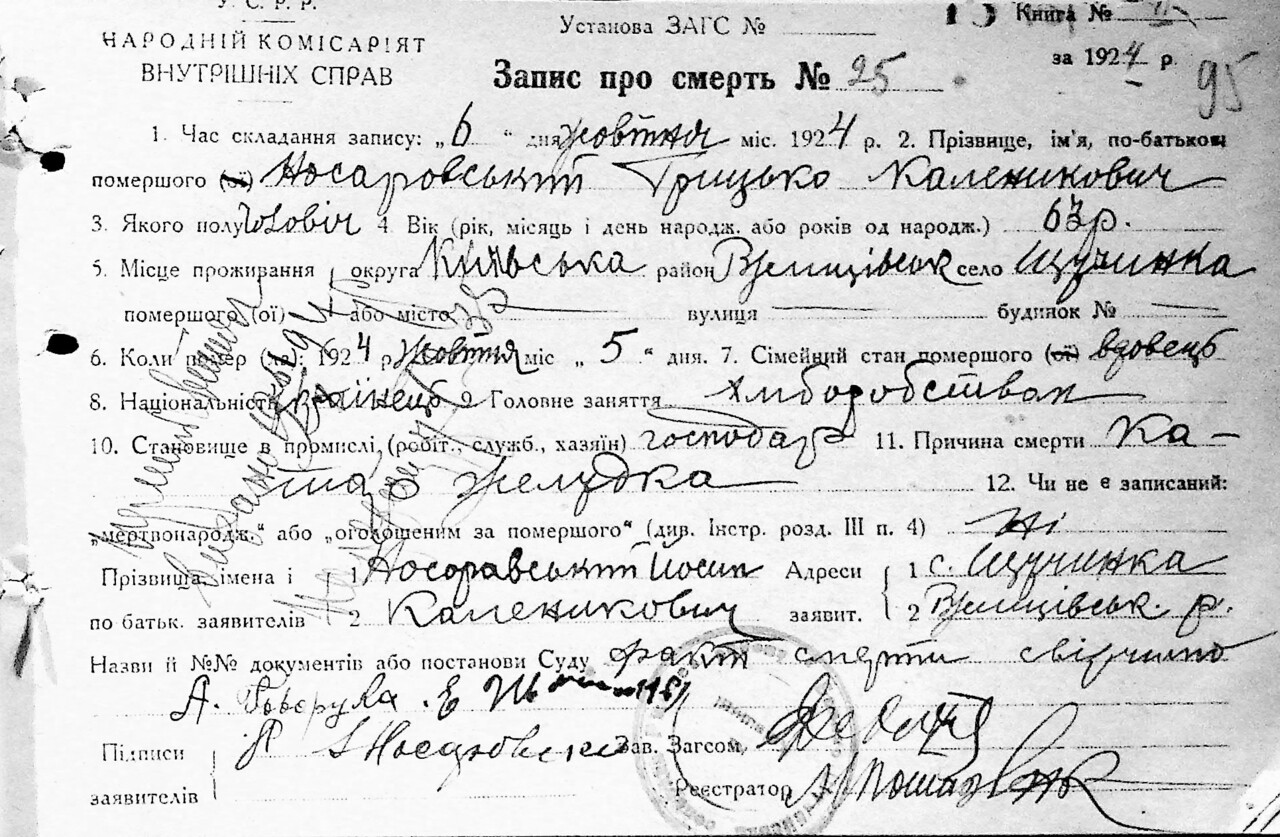 У.С.Р.Р.
НАРОДНІЙ КОМІСАРІЯТ
ВНУТРІШНІХ СПРАВ
Установа ЗАГС №
Книга №
за 1924 р.
95
Запис про смерть № 25
1. Час складання запису: „6“ дня жовтня міс. 1924 р. 2. Прізвище, ім'я, по-батькові
помершого (ої) Носаровський Грицько Каленикович
3. Якого полу чоловіч 4. Вік (рік, місяць і день народж. або років од народж.) 63 р.
5. Місце проживання округа Київська район Ржищівськ село Щучинка
помершого (ої) або місто вулиця будинок №
6. Коли помер (ла): 1924 р. жовтня міс „5“ дня. 7. Сімейний стан помершого (ої) вдовець
8. Національність Українець 9. Головне заняття Хліборобством
10. Становище в промислі, (робіт., служб., хазяїн) господар 11. Причина смерти Ка-
тар желудка 12. Чи не є записаний:
„мертвонародж.“ або „оголошеним за помершого“ (див. Інстр. розд. III п. 4) Ні
Прізвища, імена і 1 Носоравський Йосип Адреси 1 с. Щучинка
по батьк. заявителів 2 Каленикович заявит. 2 Ржищівськ. р.
Назви й №№ документів або постанови Суду факт смерти свідчимо
А. Говеруха. Е
Підписи Зав. Загсом,
заявителів Реєстратор